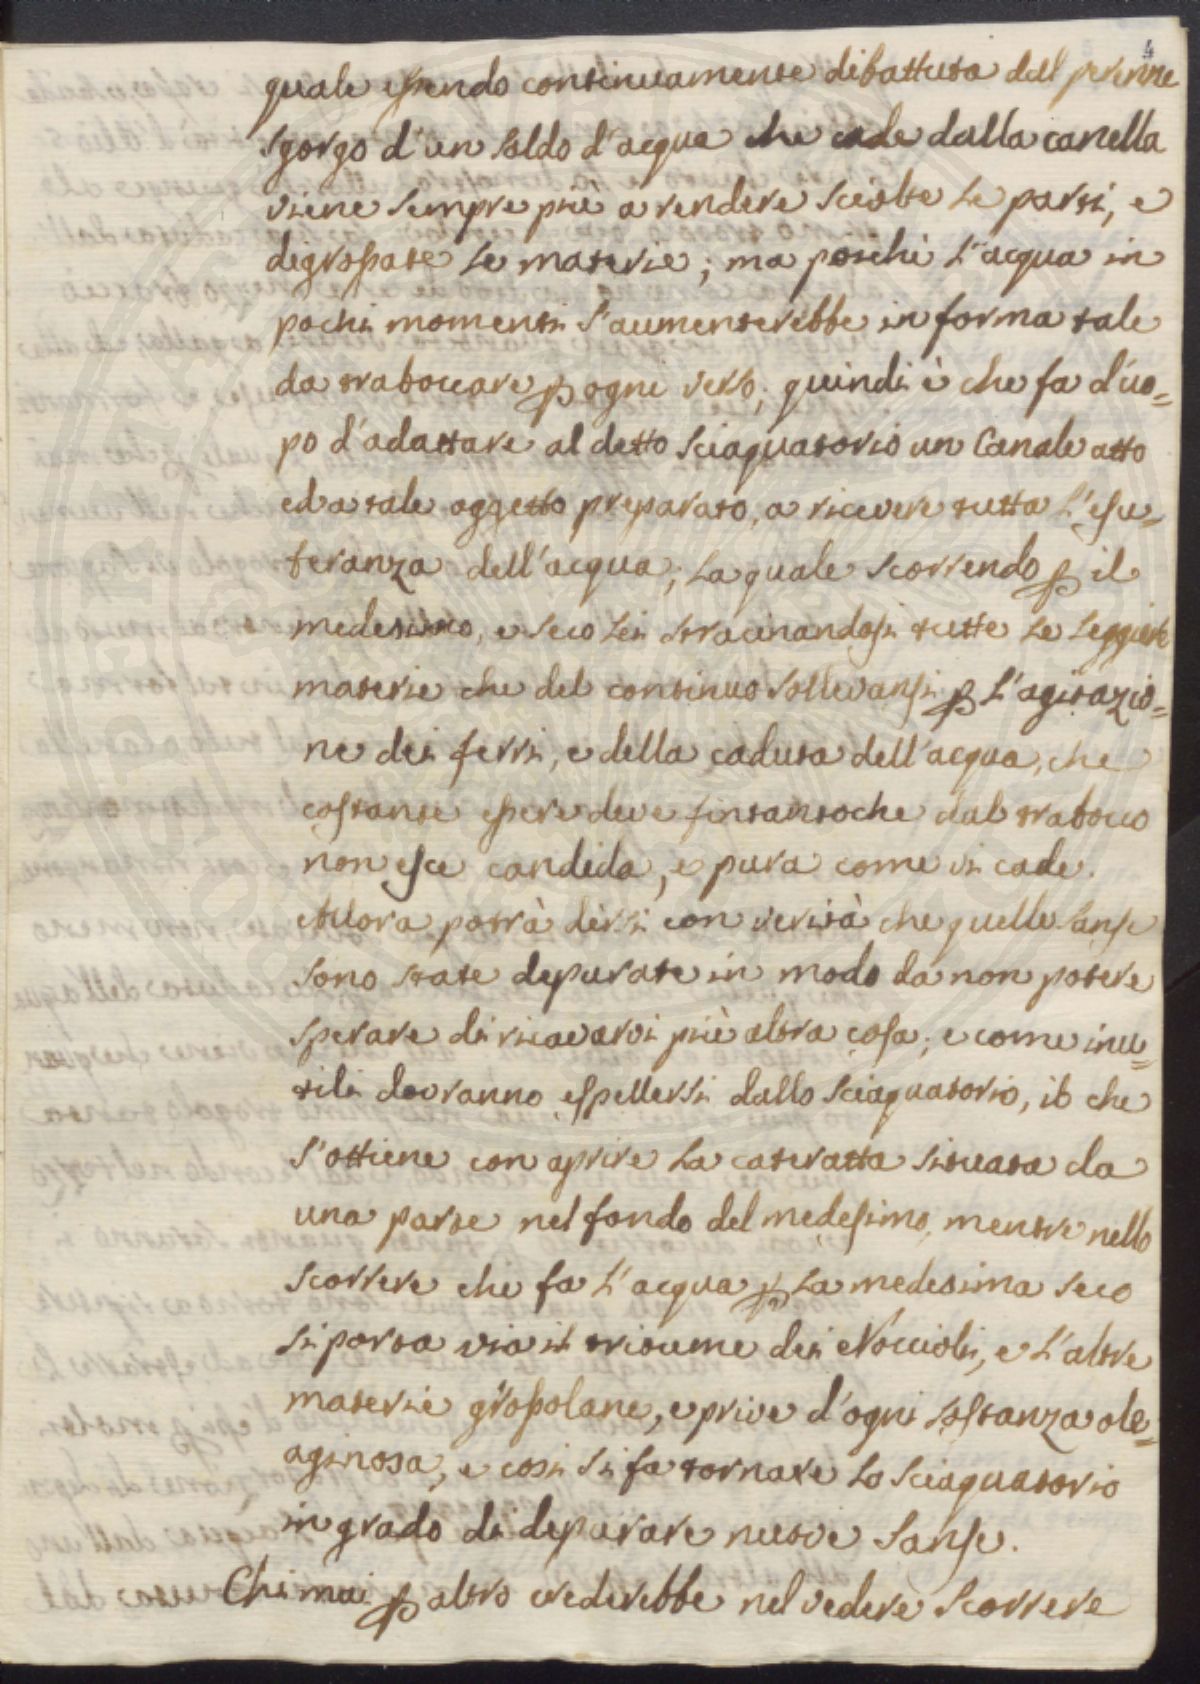 4
quale essendo continuamente dibattuta dal perenne
sgorgo d'un saldo d'acqua che cade dalla canella
viene sempre più a rendere sciolte le parti, e
digrossate le materie; ma poichè l'acqua in
pochi momenti s'aumenterebbe in forma tale
da traboccare p ogni verso; quindi è che fa d'uo=
po d'adattare al detto sciaquatorio un Canale atto
ed a tale oggetto preparato, a ricevere tutta l'esu=
beranza dell'acqua; la quale scorrendo p il
medesimo, e seco lei stracinandosi tutte le leggiere
materie che del continuo sollevansi p l'agitazio=
ne dei ferri, e della caduta dell'acqua, che
costante essere deve fintantoche dal trabocco
non esce candida, e pura come vi cade.
Allora potrà dirsi con verità che quelle sanse
sono state depurate in modo da non potere
sperare di ricavarvi più altra cosa; e come inu=
tili dovranno espellersi dallo sciaquatorio, il che
s'ottiene con aprire la cateratta situata da
una parte nel fondo del medesimo, mentre nello
scorrere che fa l'acqua p la medesima seco
si porta via il tritume dei Noccioli, e l'altre
materie grossolane, e prive d'ogni sostanza ole=
aginosa, e così si fa tornare lo sciaquatorio
in grado di depurare nuove sanse.
Chi mai p altro crederebbe nel vedere scorrere